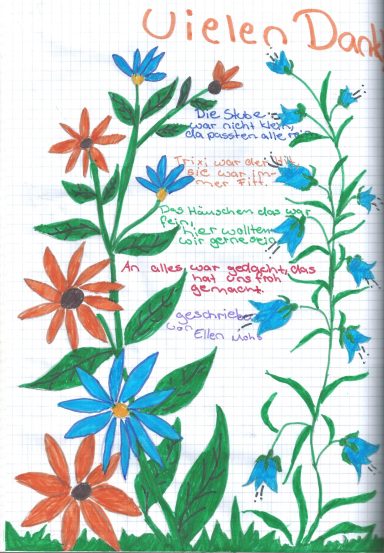 Vielen Dank
Die Stube
war nicht klein,
da passten alle rein.
Trixi war der Hit,
sie war im-
mer Fitt.
Das Häuschen das war
fein,
hier wollten
wir gerne sein
An alles war gedacht, das
hat uns froh
gemacht.
geschrieben
von
Ellen